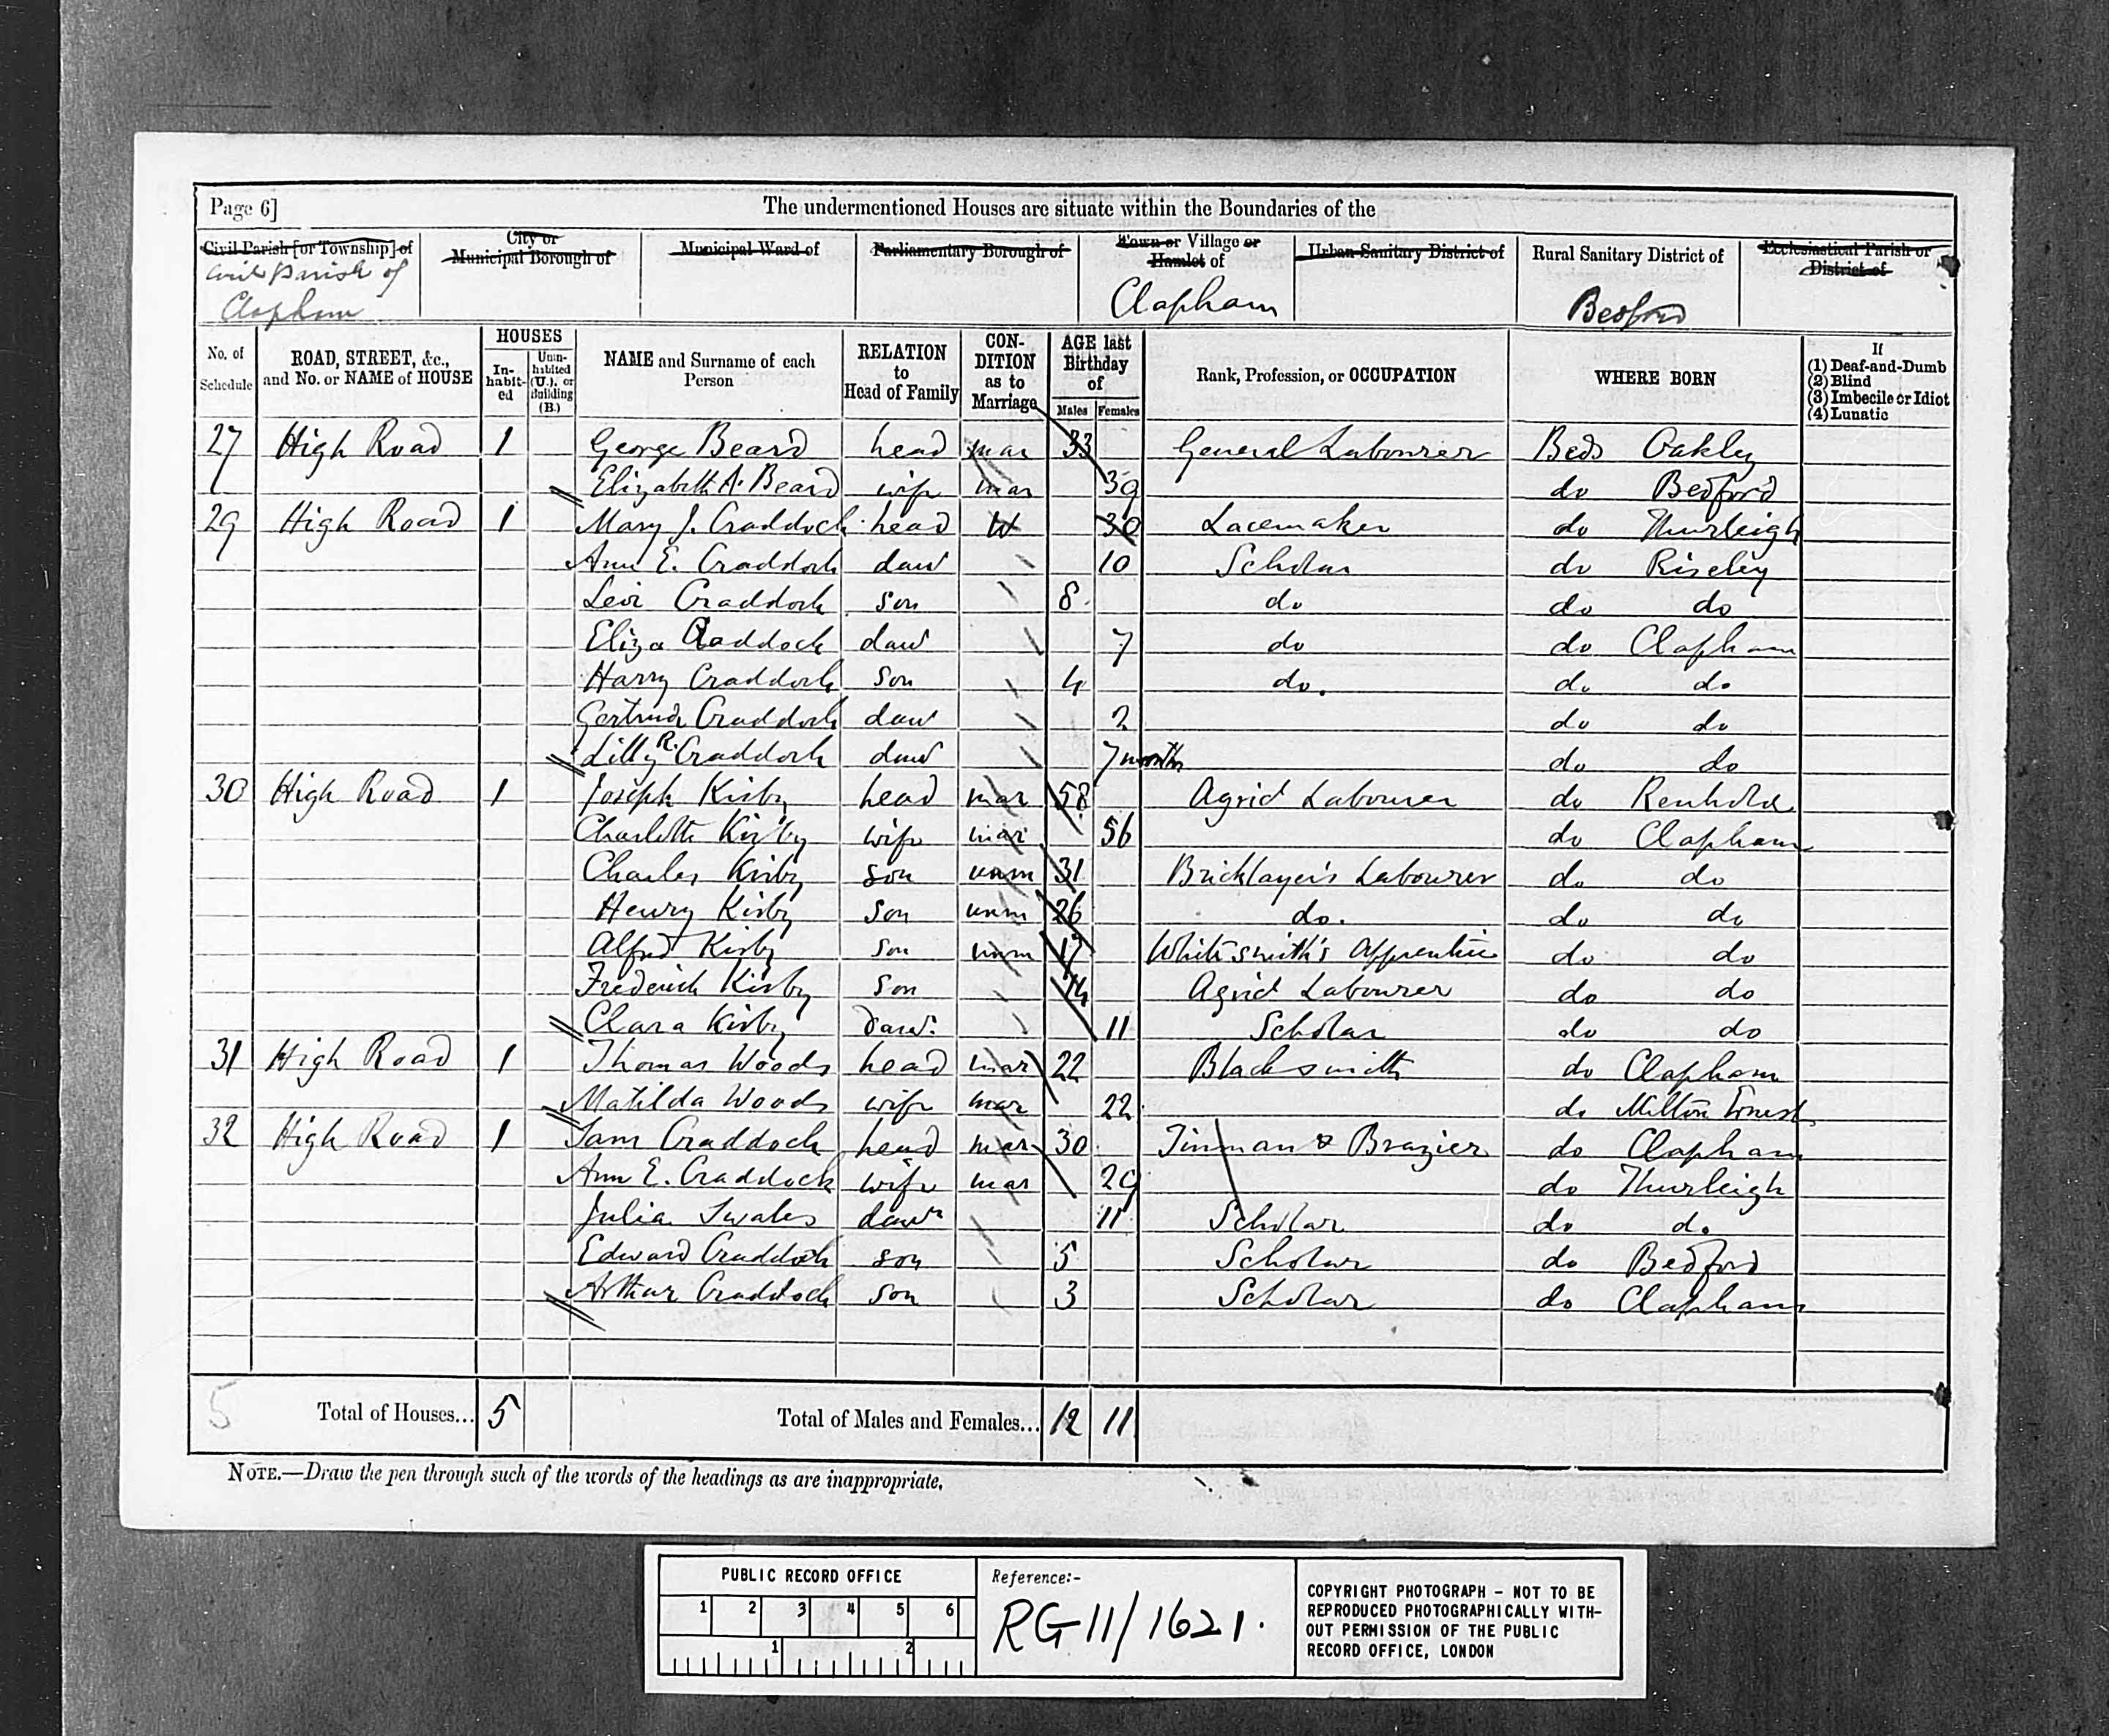 Page 6]
The undermentioned Houses are situate within the Boundaries of the
Civil Parish [or Township] of
City or Municipal Borough of
Municipal Ward of
Parliamentary Borough of
Town or Village or Hamlet of
Urban Sanitary District of
Rural Sanitary District of
Ecclesiastical Parish or District of
Civil Parish of Clapham
Clapham
Bedford
No. of Schedule
ROAD, STREET, &c., and No. or NAME of HOUSE
HOUSES
In-habit-ed
Unin-habited (U.), or Building (B.)
NAME and Surname of each Person
RELATION to Head of Family
CON-DITION as to Marriage
AGE last Birthday of
Males
Females
Rank, Profession, or OCCUPATION
WHERE BORN
If
(1) Deaf-and-Dumb
(2) Blind
(3) Imbecile or Idiot
(4) Lunatic
27 High Road 1 George Beard head mar 33 General Labourer Beds Oakley
Elizabeth A. Beard wife mar 39 do Bedford
29 High Road 1 Mary J. Craddock head W 30 Lacemaker do Thurleigh
Ann E. Craddock daur 10 Scholar do Riseley
Levi Craddock son 8 do do do
Eliza Craddock daur 7 do do Clapham
Harry Craddock son 4 do. do do
Gertrude Craddock daur 2 do do
Lilly R. Craddock daur 7 months do do
30 High Road 1 Joseph Kirby head mar 58 Agricl Labourer do Renhold
Charlotte Kirby wife mar 56 do Clapham
Charles Kirby son unm 31 Bricklayer's Labourer do do
Henry Kirby son unm 26 do. do do
Alfred Kirby son unm 17 Whitesmith's Apprentice do do
Frederick Kirby son 14 Agricl Labourer do do
Clara Kirby daur. 11 Scholar do do
31 High Road 1 Thomas Woods head mar 22 Blacksmith do Clapham
Matilda Woods wife mar 22 do Milton Ernest
32 High Road 1 Sam Craddock head mar 30 Tinman & Brazier do Clapham
Ann E. Craddock wife mar 29 do Thurleigh
Julia Swales daur 11 Scholar do do
Edward Craddock son 5 Scholar do Bedford
Arthur Craddock son 3 Scholar do Clapham
5 Total of Houses... 5 Total of Males and Females... 12 11
NOTE.—Draw the pen through such of the words of the headings as are inappropriate.
PUBLIC RECORD OFFICE
1 2 3 4 5 6
1 2
Reference:-
RG 11/1621.
COPYRIGHT PHOTOGRAPH - NOT TO BE
REPRODUCED PHOTOGRAPHICALLY WITH-
OUT PERMISSION OF THE PUBLIC
RECORD OFFICE, LONDON